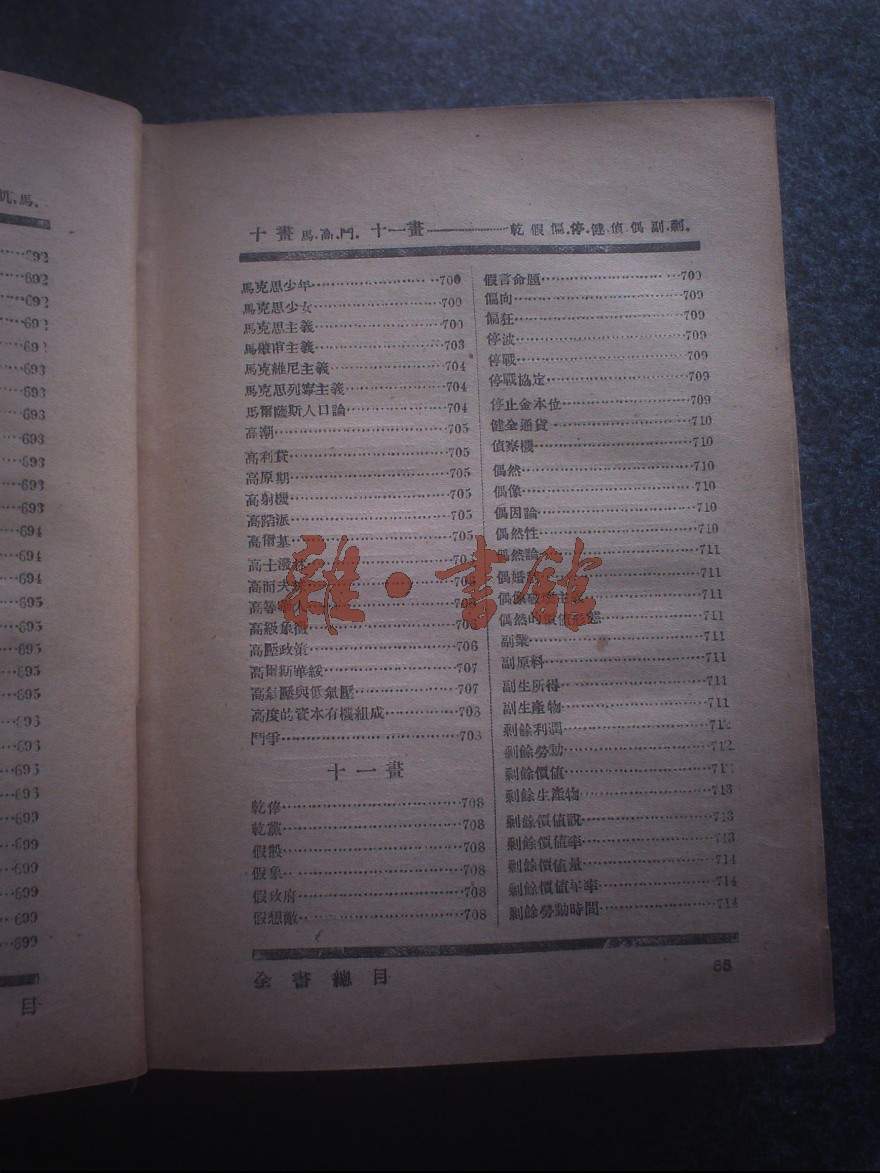 馬.
692
692
692
692
692
693
693
693
693
693
693
694
694
694
695
695
695
695
699
699
699
699
699
目
十畫 馬.高.鬥. 十一畫 乾.假.偏.停.健.偵.偶.副.剩.
馬克思少年 700
馬克思少女 700
馬克思主義 700
馬薩甫主義 703
馬克維尼主義 704
馬克思列寧主義 704
馬爾薩斯人口論 704
高潮 705
高利貸 705
高原期 705
高射機 705
高蹈派 705
高爾基 705
高士潑林
高而夫
高等
高級象徵
高壓政策 706
高爾斯華綏 707
高氣壓與低氣壓 707
高度的資本有機組成 708
鬥爭 708
十一畫
乾俸 708
乾薪 708
假設 708
假象 708
假政府 708
假想敵 708
假言命題 709
偏向 709
偏狂 709
停波 709
停戰 709
停戰協定 709
停止金本位 709
健全通貨 710
偵察機 710
偶然 710
偶像 710
偶因論 710
偶然性 710
偶然論 711
偶婚 711
偶像 711
偶然的價值形態 711
副業 711
副原料 711
副生所得 711
副生產物 711
剩餘利潤 712
剩餘勞動 712
剩餘價值
剩餘生產物 713
剩餘價值說 713
剩餘價值率 713
剩餘價值量 714
剩餘價值年率 714
剩餘勞動時間 714
全書總目
65
雜·書館